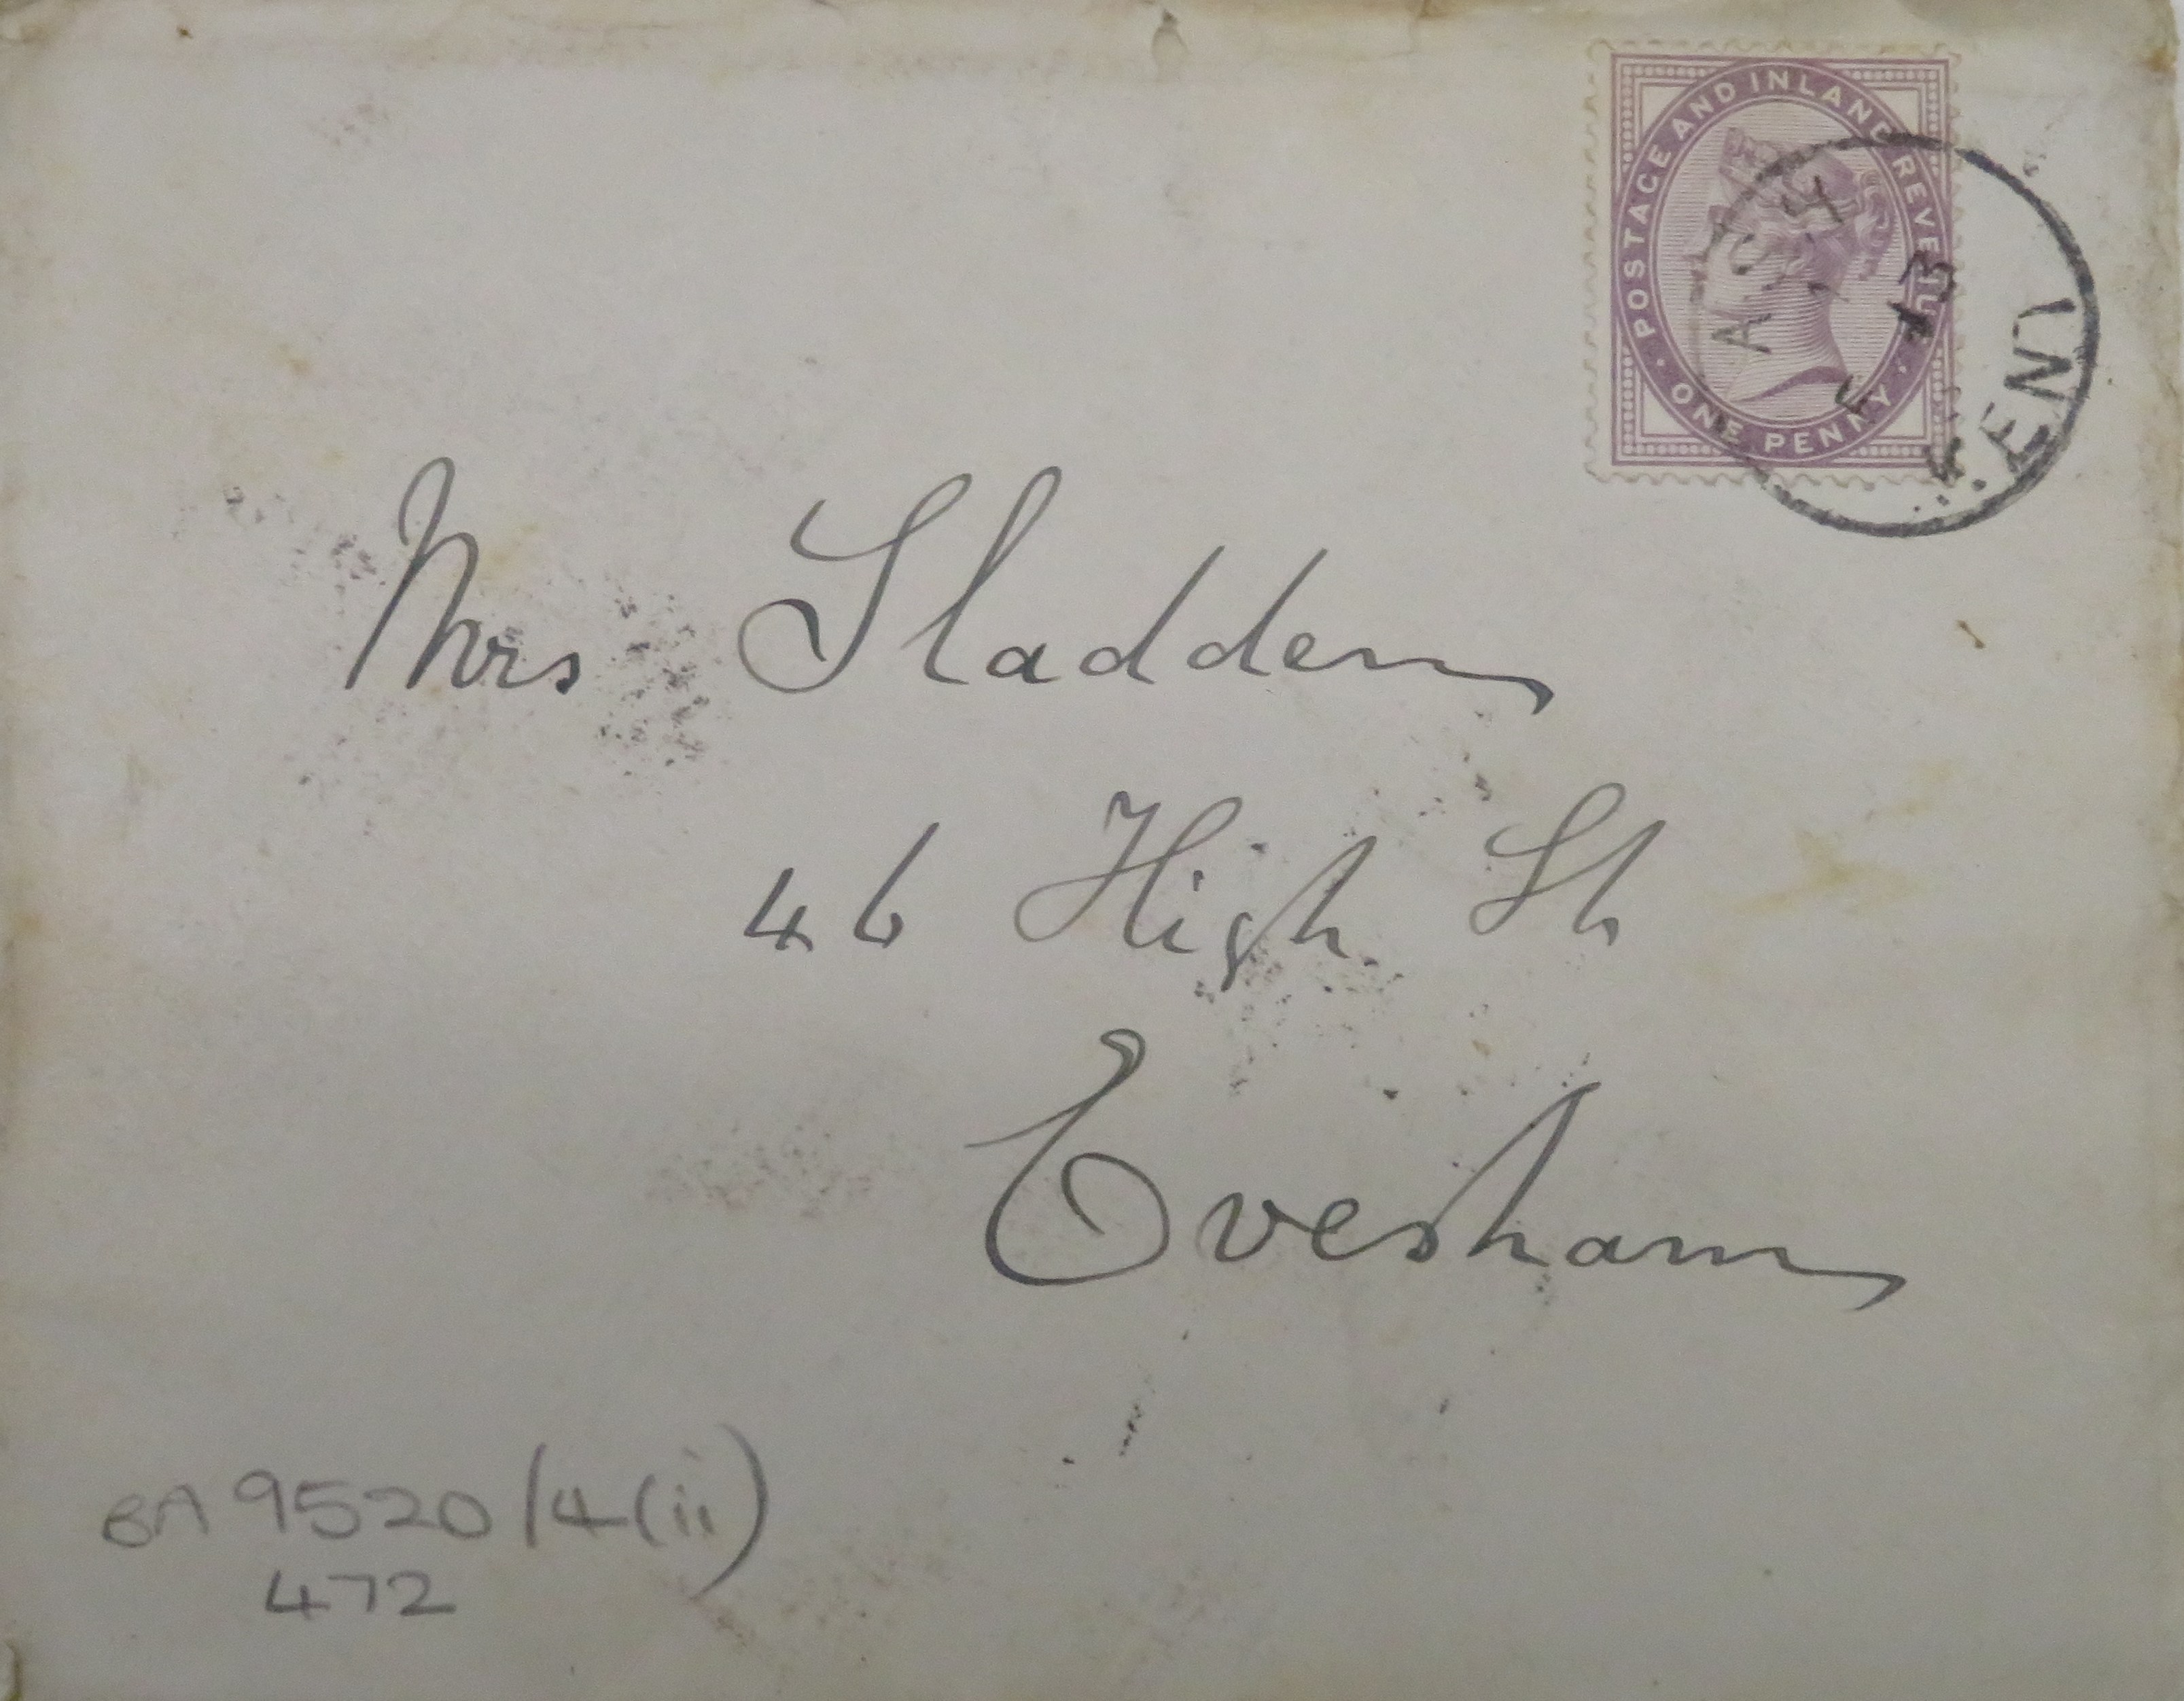 POSTAGE AND INLAND REVENUE
ONE PENNY
Mrs Sladden
46 High St
Evesham
BA 9520/4(ii)
472